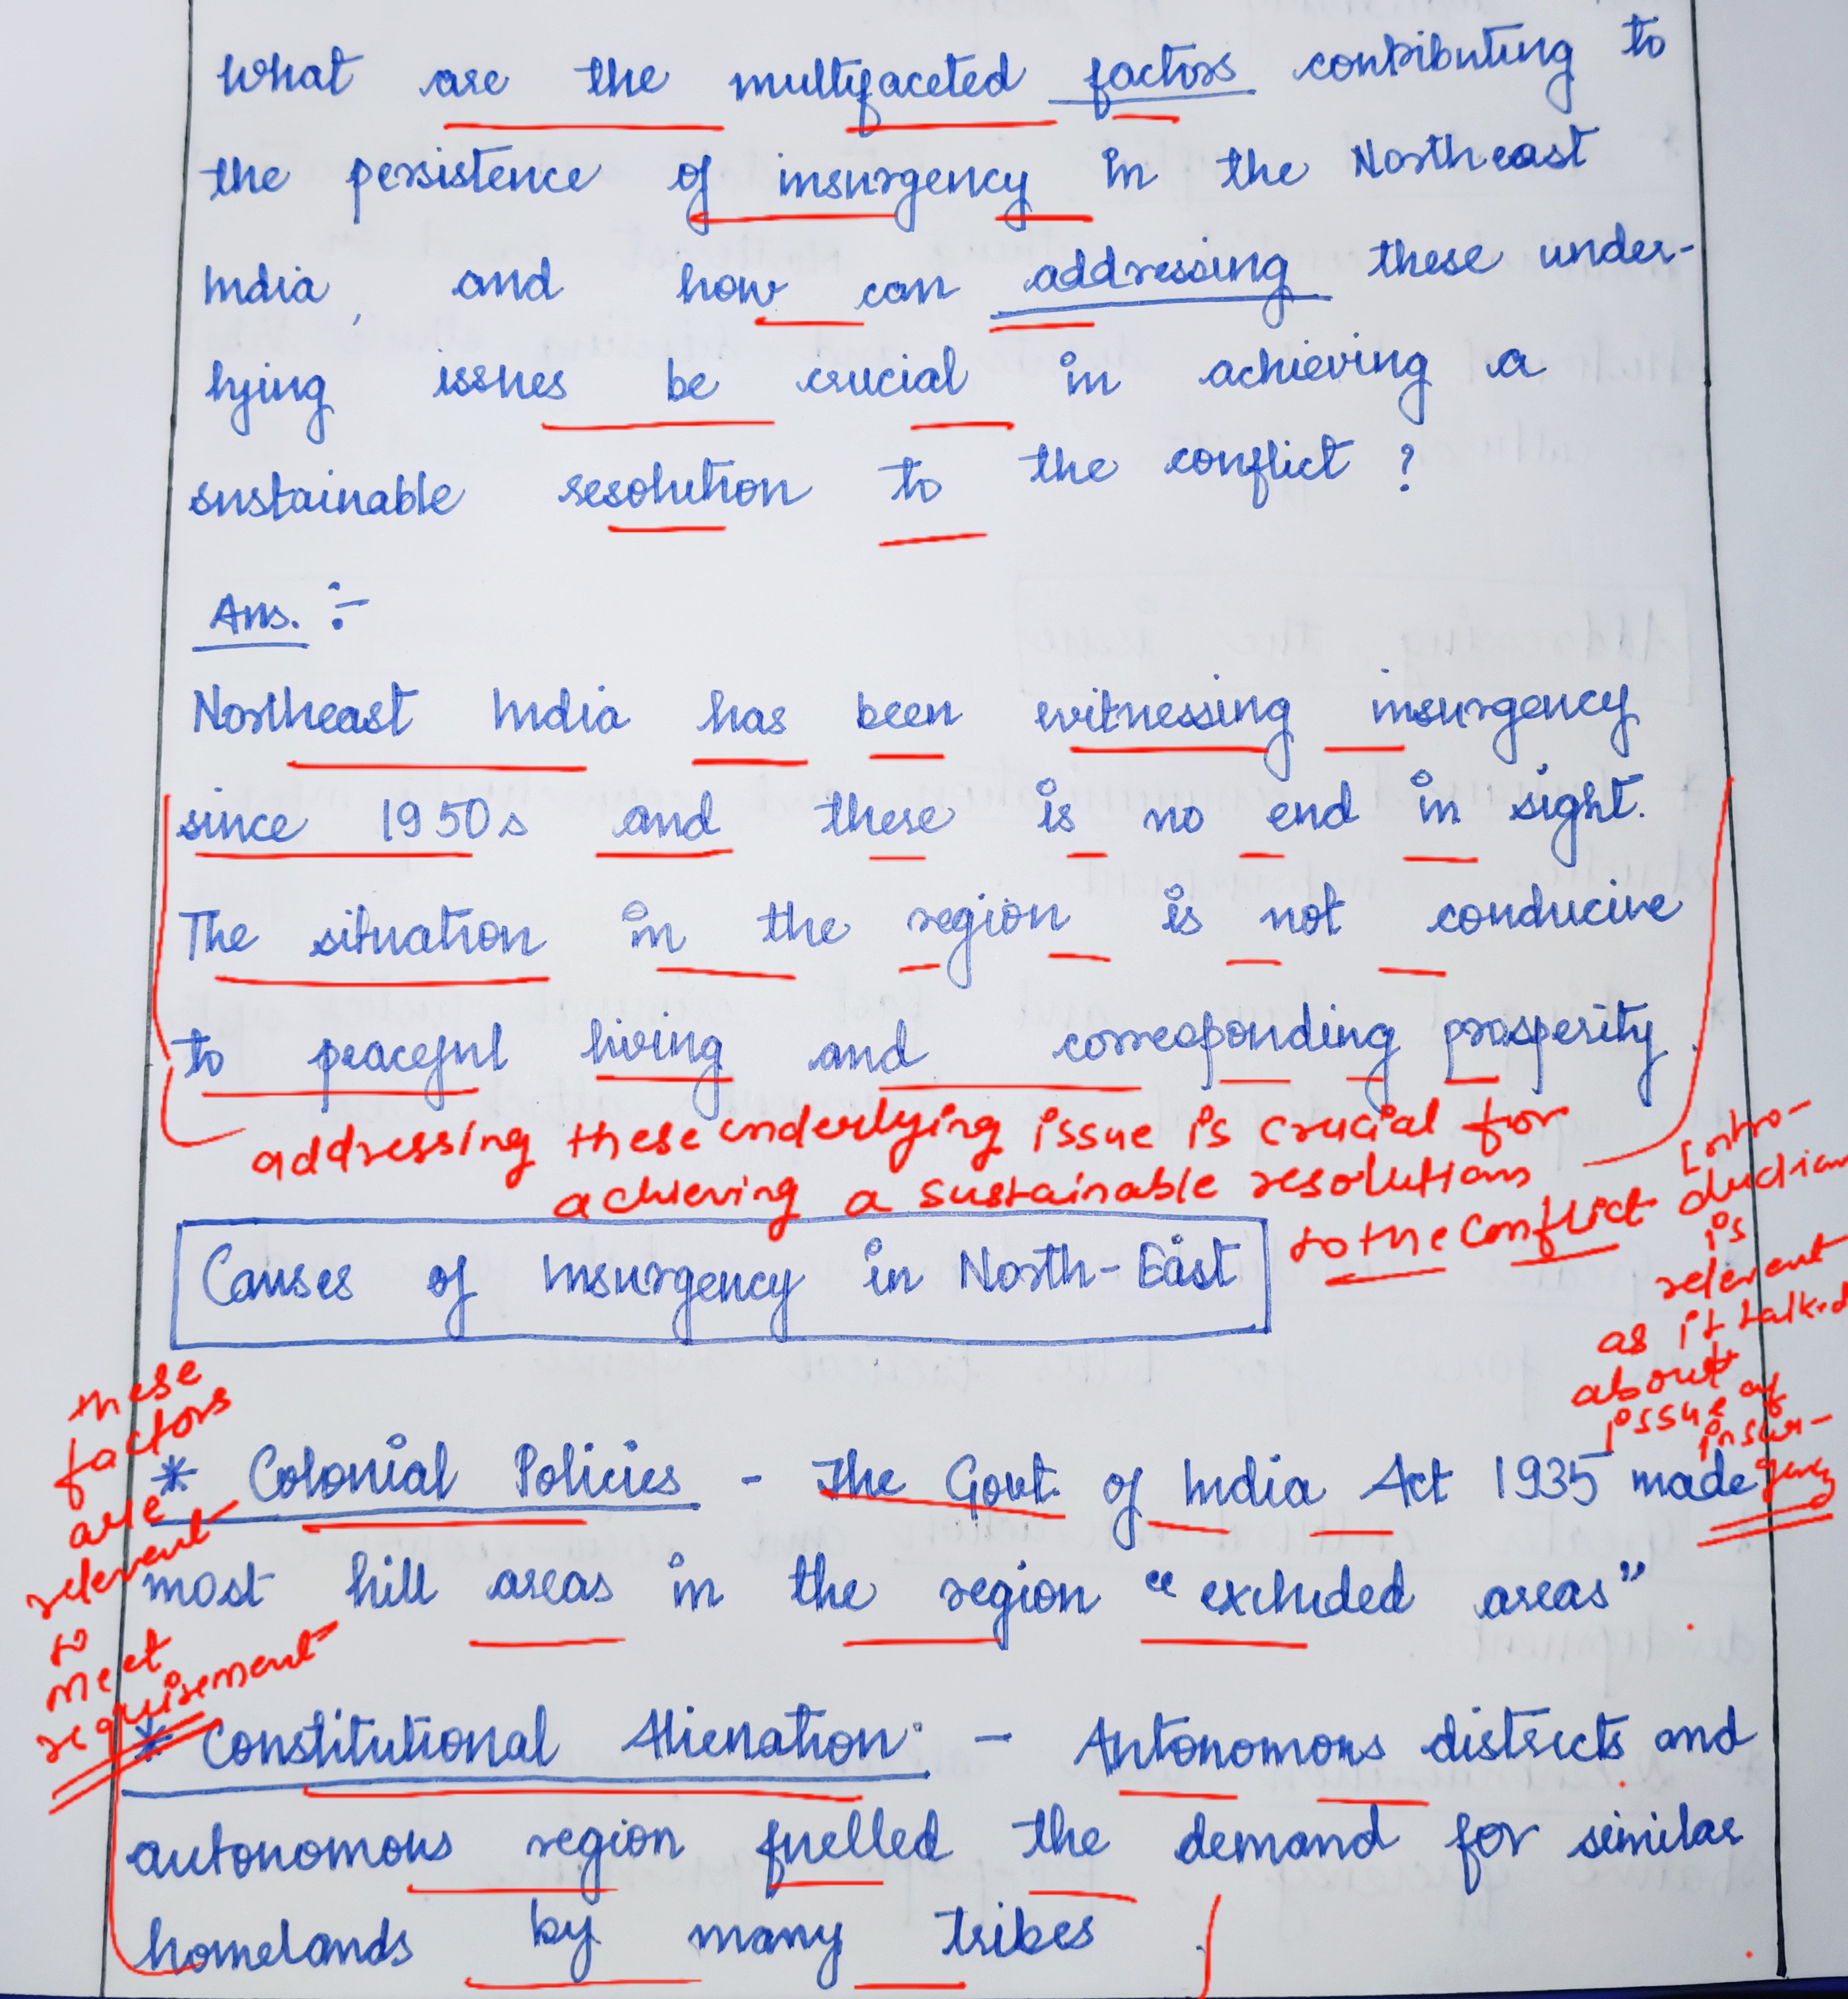 What are the multifaceted factors contributing to
the persistence of insurgency in the Northeast
India, and how can addressing these under-
lying issues be crucial in achieving a
sustainable resolution to the conflict ?
Ans. :-
Northeast India has been witnessing insurgency
since 1950s and there is no end in sight.
The situation in the region is not conducive
to peaceful living and corresponding prosperity.
addressing these underlying issue is crucial for
achieving a sustainable resolutions
to the conflict
Intro-
duction
is
relevent
as it talked
about
issue of
insur-
gency
Causes of Insurgency in North-East
these
factors
are
relevent
to
meet
requirement
* Colonial Policies - The Govt. of India Act 1935 made
most hill areas in the region "excluded areas".
* Constitutional Alienation :- Autonomous districts and
autonomous region fuelled the demand for similar
homelands by many tribes.